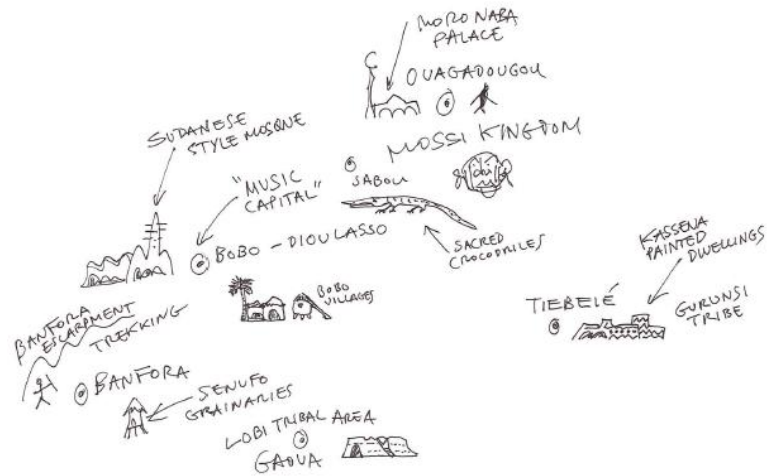 MORO NABA
PALACE
OUAGADOUGOU
MOSSI KINGDOM
SUDANESE
STYLE MOSQUE
"MUSIC
CAPITAL"
SABOU
BOBO - DIOULASSO
SACRED
CROCODRILES
BOBO
VILLAGES
KASSENA
PAINTED
DWELLINGS
TIEBELÉ
GURUNSI
TRIBE
BANFORA
ESCARPMENT
TREKKING
BANFORA
SENUFO
GRAINARIES
LOBI TRIBAL AREA
GAOUA